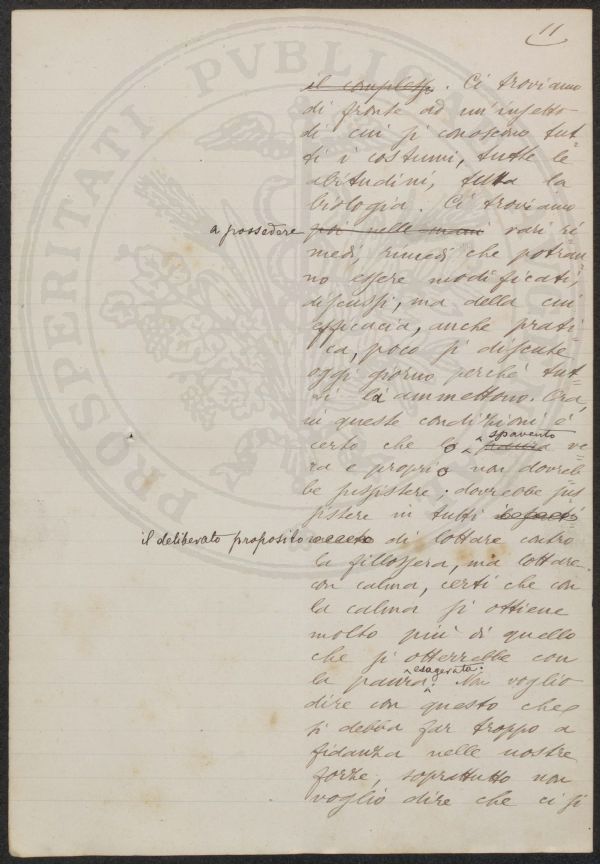 11
il complesso. Ci troviamo
di fronte ad un'insetto
di cui si conoscono tut-
ti i costumi, tutte le
abitudini, tutta la
biologia. Ci troviamo
a possedere poi nelle mani vari ri-
medi, rimedi che potran-
no essere modificati,
discussi, ma della cui
efficacia, anche prati-
ca, poco si discute
oggi giorno perché tut-
ti la ammettono. Ora,
in queste condizioni è
spavento
certo che lo paura ve-
ro e proprio non dovreb-
be sussistere; dovrebbe sus-
sistere in tutti
il deliberato proposito di lottare contro
la fillossera, ma lottare
con calma, certi che con
la calma si ottiene
molto più di quello
che si otterrebbe con
esagerata.
la paura. Non voglio
dire con questo che
si debba far troppo a
fidanza nelle nostre
forze, soprattutto non
voglio dire che ci si
PROSPERITATI PVBLICAE